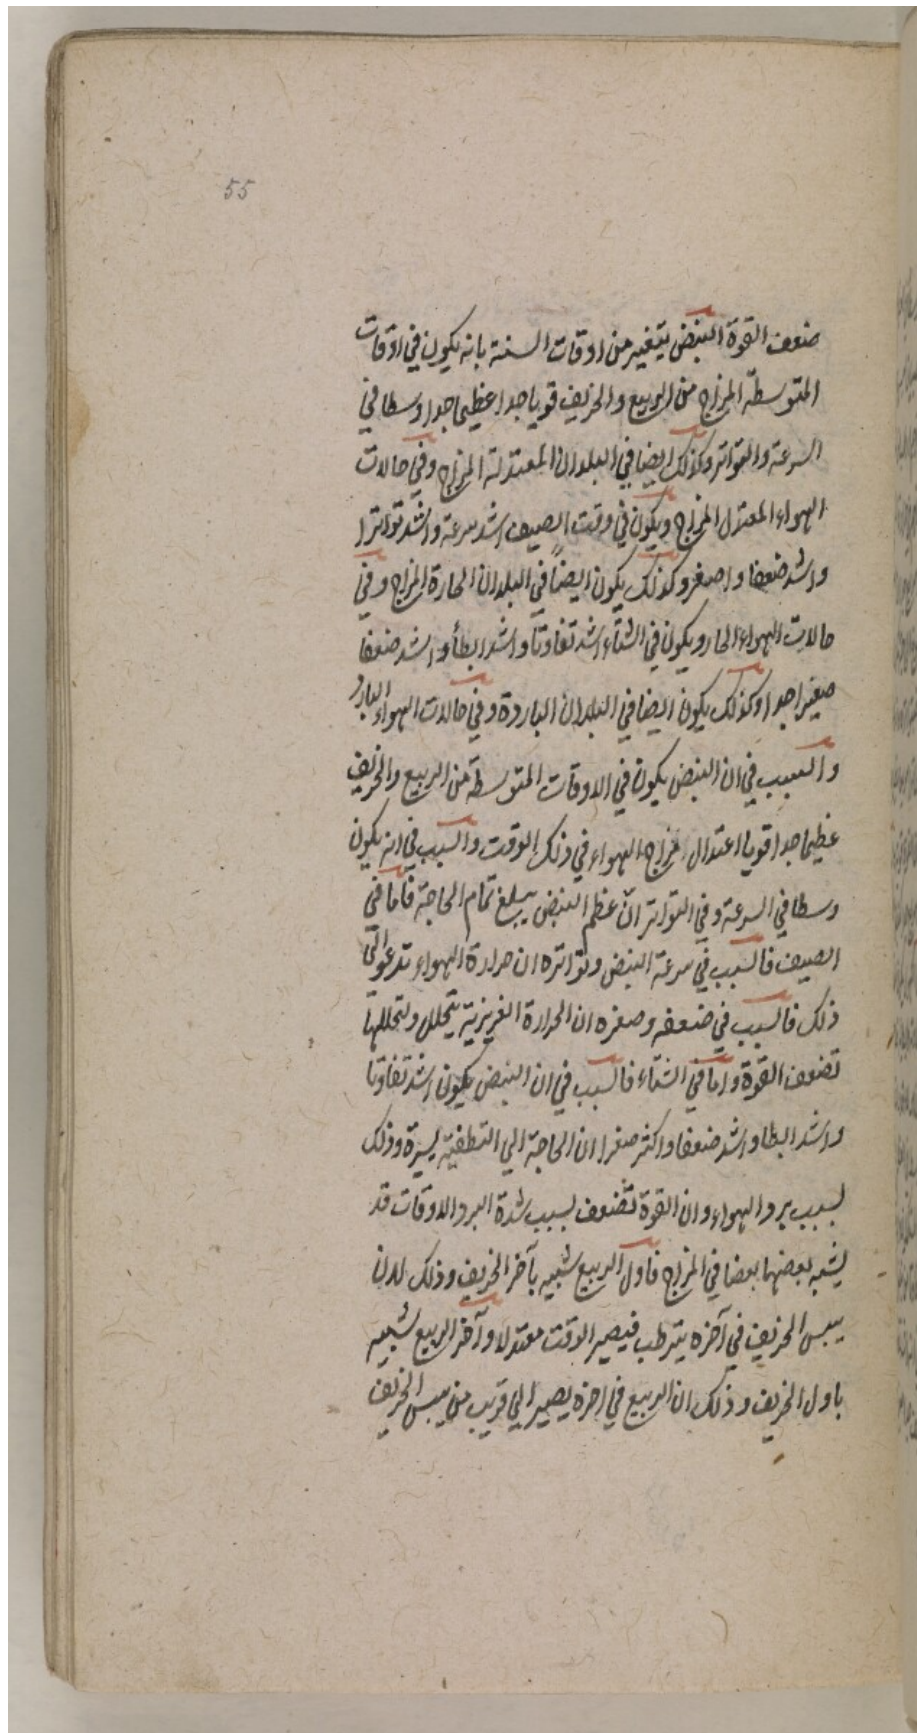 55
ضعف القوة النبض يتغير من اوقات السنة بانه يكون في اوقات
المتوسطة المزاج من الربيع والخريف قويا جدا عظيما جدا وسطا في
السرعة والتواتر وكذلك ايضا في البلدان المعتدلة المزاج وفي حالات
الهواء المعتدل المزاج ويكون في وقت الصيف اشد سرعة واشد تواترا
واشد ضعفا واصغر وكذلك يكون ايضا في البلدان الحارة المزاج وفي
حالات الهواء الحار ويكون في الشتاء اشد تفاوتا واشد ابطأ واشد ضعفا
صغيرا جدا وكذلك يكون ايضا في البلدان الباردة وفي حالات الهواء البارد
والسبب في ان النبض يكون في الاوقات المتوسطة من الربيع والخريف
عظيما جدا قويا اعتدال مزاج الهواء في ذلك الوقت والسبب في انه يكون
وسطا في السرعة وفي التواتر ان عظم النبض يبلغ تمام الحاجة فاما في
الصيف فالسبب في سرعة النبض وتواتره ان حرارة الهواء تدعو الى
ذلك فالسبب في ضعفه وصغره ان الحرارة الغريزية يتحلل ولتحللها
تضعف القوة واما في الشتاء فالسبب في ان النبض يكون اشد تفاوتا
واشد ابطا واشد ضعفا واكثر صغرا ان الحاجة الي التطفية يسيرة وذلك
لسبب برد الهواء وان القوة تضعف لسبب شدة البرد الاوقات قد
يشبه بعضها بعضا في المزاج فاول الربيع شبيه بآخر الخريف وذلك لان
يبس الخريف في آخره يترطب فيصير الوقت معتدلا وآخر الربيع شبيه
باول الخريف وذلك ان الربيع في اخره يصير الي قريب من يبس الخريف